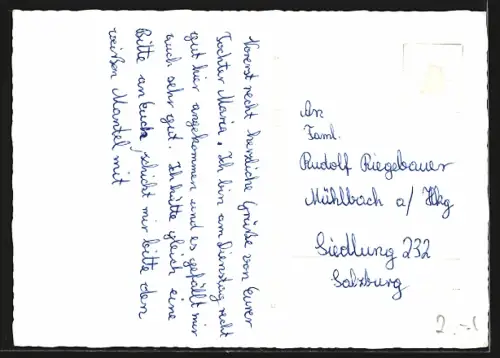 Vorerst recht herzliche Grüße von Eurer
Tochter Maria. Ich bin am Dienstag recht
gut hier angekommen und es gefällt mir
auch sehr gut. Ich hätte gleich eine
Bitte an Euch, schickt mir bitte den
weißen Mantel mit
An
Faml.
Rudolf Riegebauer
Mühlbach a/ Hkg
Siedlung 232
Salzburg
2.-